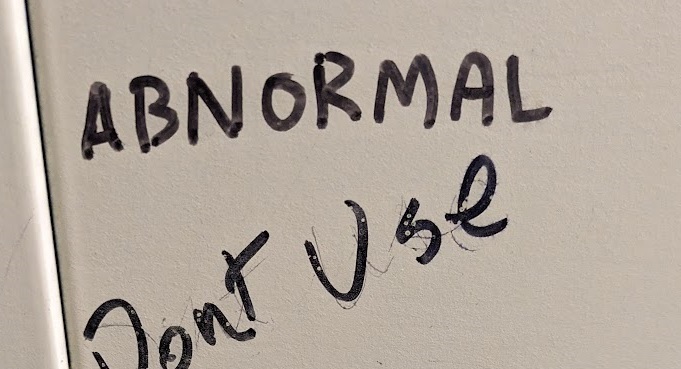 ABNORMAL
Dont Use